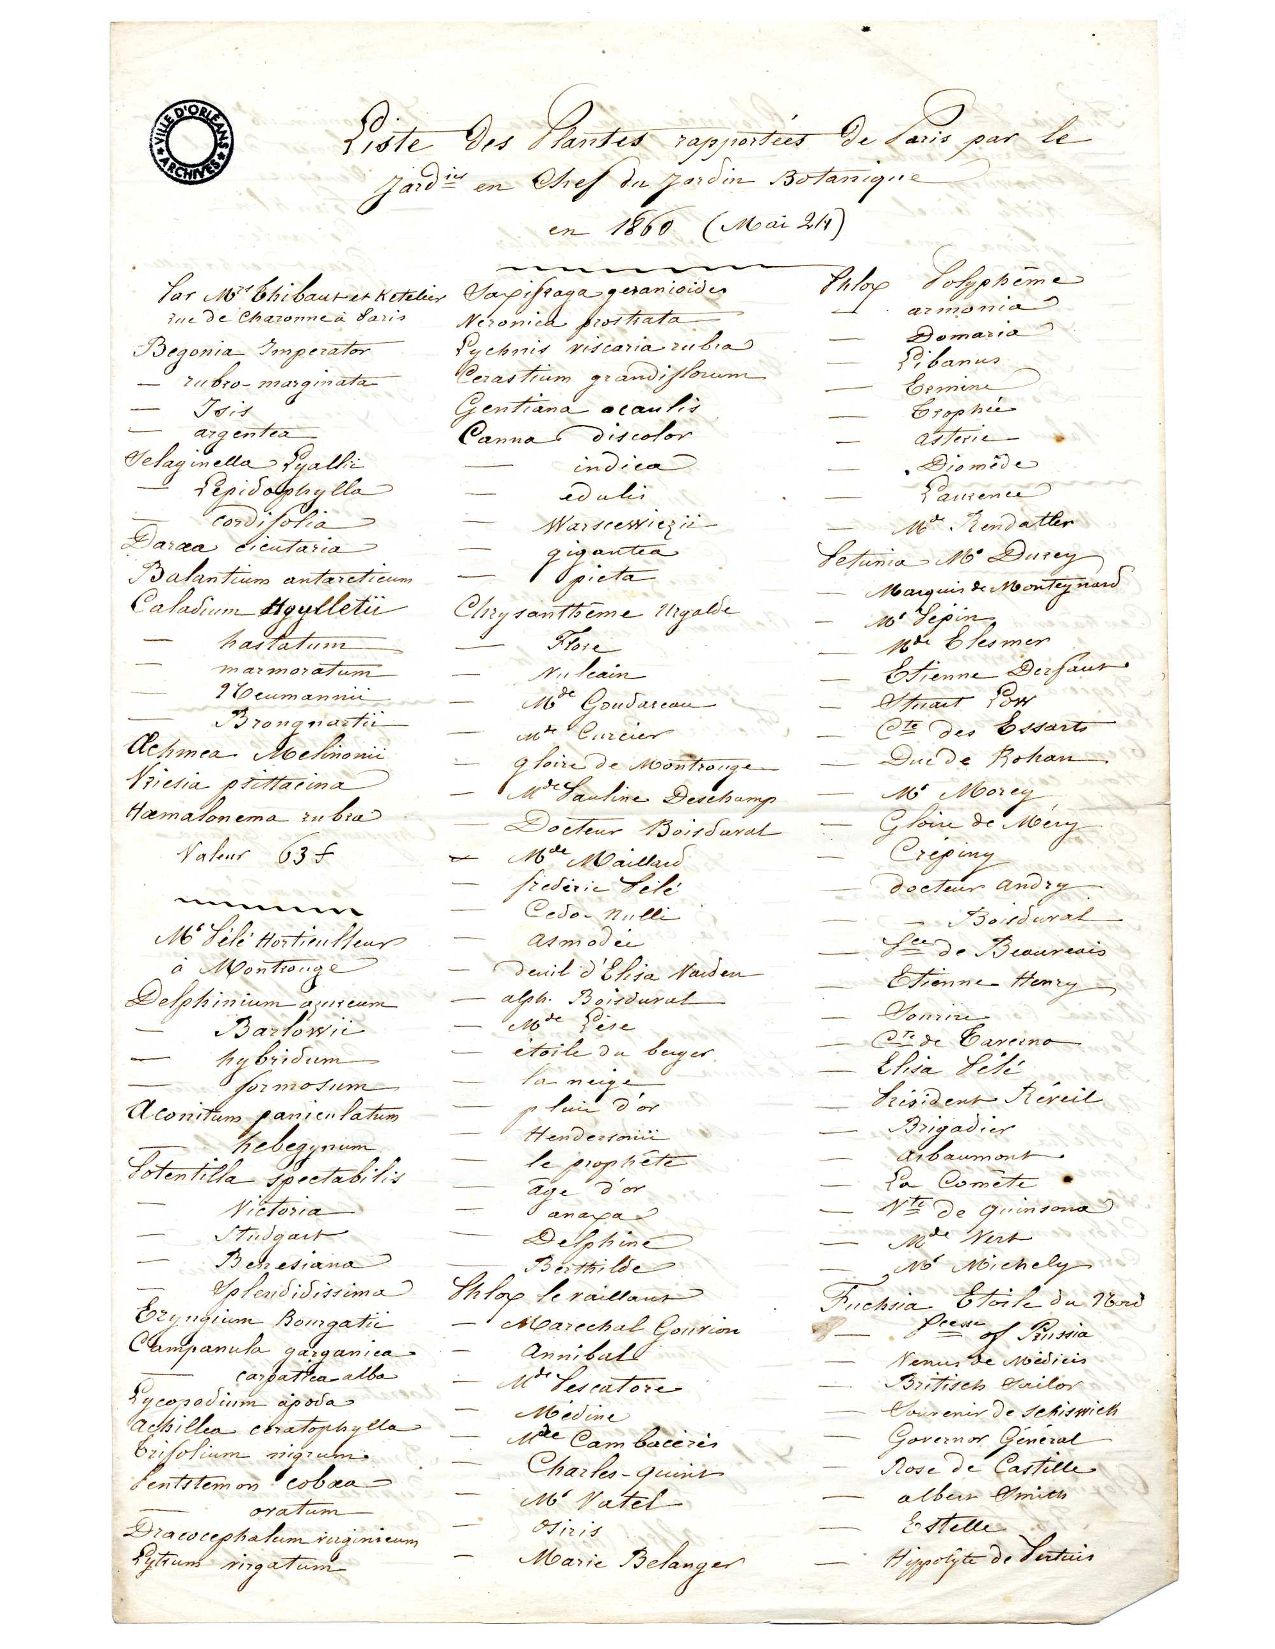 VILLE D'ORLÉANS
ARCHIVES
Liste des Plantes rapportées de Paris par le
Jard.ier en Chef du Jardin Botanique
en 1860 (Mai 24)
Par Mrs Thibaut et Ketelier
rue de Charonne à Paris
Begonia Imperator
— rubro-marginata
— Isis
— argentea
Selaginella Lyallii
— Lepidophylla
— cordifolia
Darea cicutaria
Balantium antarcticum
Caladium Hoylletii
— hastatum
— marmoratum
— Neumannii
— Brongnartii
Æchmea Melinonii
Vriesia psittacina
Hæmalonema rubra
Valeur 63 f
Mr Pélé Horticulteur
à Montrouge
Delphinium azureum
— Barlowii
— hybridum
— formosum
Aconitum paniculatum
— hebegynum
Potentilla spectabilis
— Victoria
— Studgart
— Benesiana
— Splendidissima
Eryngium Bourgatii
Campanula garganica
— carpatica alba
Lycopodium apoda
Achillea ceratophylla
Trifolium nigrum
Pentstemon cobæa
— ovatum
Dracocephalum virginicum
Lytrum virgatum
Saxifraga geranioides
Veronica prostrata
Lychnis viscaria rubra
Cerastium grandiflorum
Gentiana acaulis
Canna discolor
— indica
— edulis
— Warscewiczii
— gigantea
— picta
Chrysanthême Urgalde
— Flore
— Vulcain
— Mde Goudareau
— Mde Curcier
— gloire de Montrouge
— Mde Pauline Deschamp
— Docteur Boisduval
— Mde Maillard
— frédéric Pélé
— Cedo-Nulli
— asmodée
— deuil d'Elisa Varden
— alph. Boisduval
— Mde Lése
— étoile du berger
— la neige
— pluie d'or
— Hendersonii
— le prophête
— âge d'or
— anaxa
— Delphine
— Berthilde
Phlox le vaillant
— Marechal Gouvion
— Annibal
— Mde Pescatore
— Médine
— Mde Cambacérès
— Charles-quint
— Mr Vatel
— Osiris
— Marie Belanger
Phlox Polyphême
— armonia
— Domaria
— Libanus
— Ermine
— Trophée
— asterie
— Diomêde
— Laurence
— Mde Rendatler
Petunia Mr Durey
— Marquis de Monteynard
— Mr Pépin
— Mde Elesmer
— Etienne Desfaut
— Stuart Low
— Cte des Essarts
— Duc de Rohan
— Mr Morey
— Gloire de Méry
— Crépiny
— docteur andry
— — Boisduval
— Pce de Beauveais
— Etienne Henry
— Sourire
— Cte de Taverno
— Elisa Pélé
— Président Réveil
— Brigadier
— arbaumont
— La Comête
— Vte de quinsona
— Mde Vert
— Mr Michely
Fuchsia Etoile du Nord
— Pcesse of Prussia
— Venus de Médicis
— Britisch Sailor
— Souvenir de Schiswich
— Governor Général
— Rose de Castille
— albert Smith
— Estelle
— Hippolyte de Vertuis